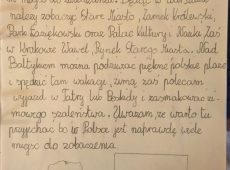 należy zobaczyć Stare Miasto, Zamek Królewski,
Park Łazienkowski oraz Pałac Kultury i Nauki. Zaś
w Krakowie Wawel, Rynek Starego Miasta. Nad
Bałtykiem można podziwiać piękne polskie plaże
i spędzić tam wakacje, zimą zaś polecam
wyjazd w Tatry lub Beskidy i zasmakować zi-
mowego szaleństwa. Uważam, że warto tu
przyjechać bo w Polsce jest naprawdę wiele
miejsc do zobaczenia.